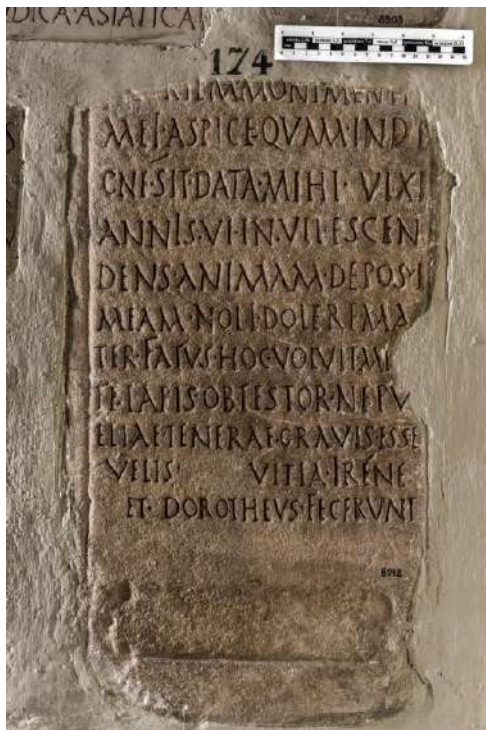 DICA·ASIATICA
8903
174
MONIMENTI
MEI·ASPICE·QVAM·INDI
GNE·SIT·DATA·MIHI· VIXI
ANNIS·VI·IN·VII·ESCEN
DENS·ANIMAM·DEPOSI
MEAM·NOLI·DOLERE·MA
TER·FATVS·HOC·VOLVIT·MI
TE·LAPIS·OBTESTOR·NE·PV
ELLAE·TENERAE·GRAVIS·ESSE
VELIS VITIA·IRÉNE
ET·DOROTHEVS·FECERVNT